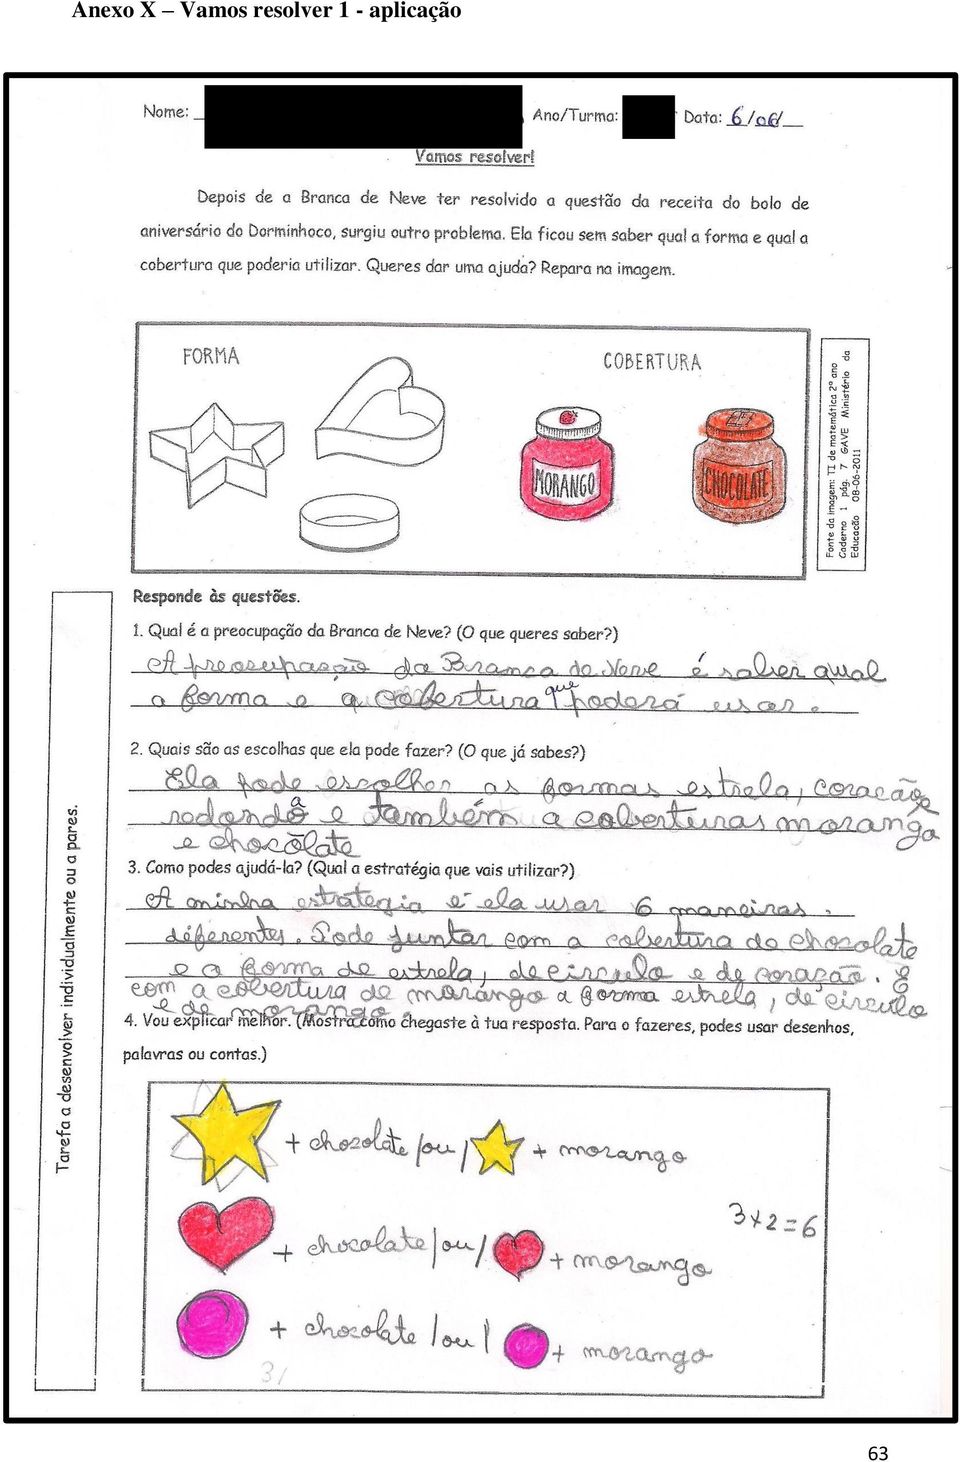 Anexo X – Vamos resolver 1 - aplicação
Nome: Ano/Turma: Data: 6/06/
Vamos resolver!
Depois de a Branca de Neve ter resolvido a questão da receita do bolo de
aniversário do Dorminhoco, surgiu outro problema. Ela ficou sem saber qual a forma e qual a
cobertura que poderia utilizar. Queres dar uma ajuda? Repara na imagem.
FORMA
COBERTURA
MORANGO
CHOCOLATE
Fonte da imagem: TI de matemática 2º ano
Caderno 1 pág. 7 GAVE Ministério da
Educacão 08-06-2011
Responde às questões.
1. Qual é a preocupação da Branca de Neve? (O que queres saber?)
A preocupação da Branca de Neve é saber qual
a forma e a cobertura que poderá usar.
2. Quais são as escolhas que ela pode fazer? (O que já sabes?)
Ela pode escolher as formas estrela, coração e
redonda e também a coberturas morango
e chocolate
3. Como podes ajudá-la? (Qual a estratégia que vais utilizar?)
A minha estratégia é ela usar 6 maneiras
diferentes. Pode juntar com a cobertura do chocolate
e a forma de estrela, de circulo e de coração. E
com a cobertura de morango a forma estrela, de circulo
e de morango.
4. Vou explicar melhor. (Mostra como chegaste à tua resposta. Para o fazeres, podes usar desenhos,
palavras ou contas.)
Tarefa a desenvolver individualmente ou a pares.
+ chocolate /ou/ + morango
+ chocolate /ou/ + morango
3x2=6
+ chocolate /ou/ + morango
63